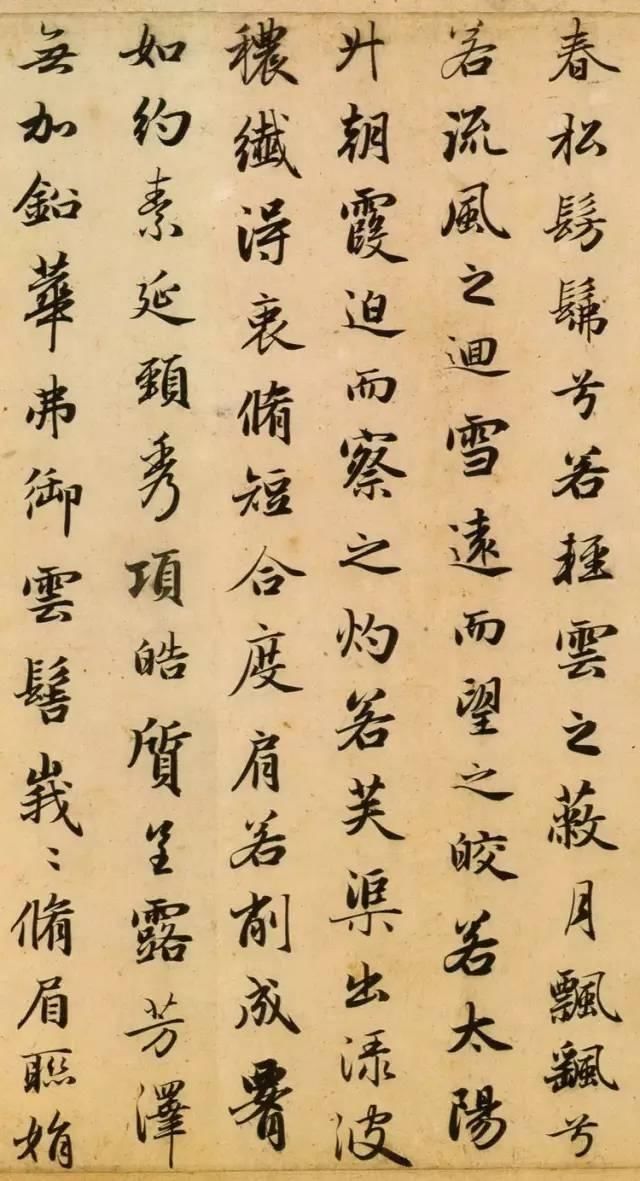 春松髣髴兮若輕雲之蔽月飄颻兮
若流風之迴雪遠而望之皎若太陽
升朝霞迫而察之灼若芙渠出渌波
穠纖得衷脩短合度肩若削成署
如約素延頸秀項皓質呈露芳澤
無加鉛華弗御雲髻峩〻脩眉聯娟